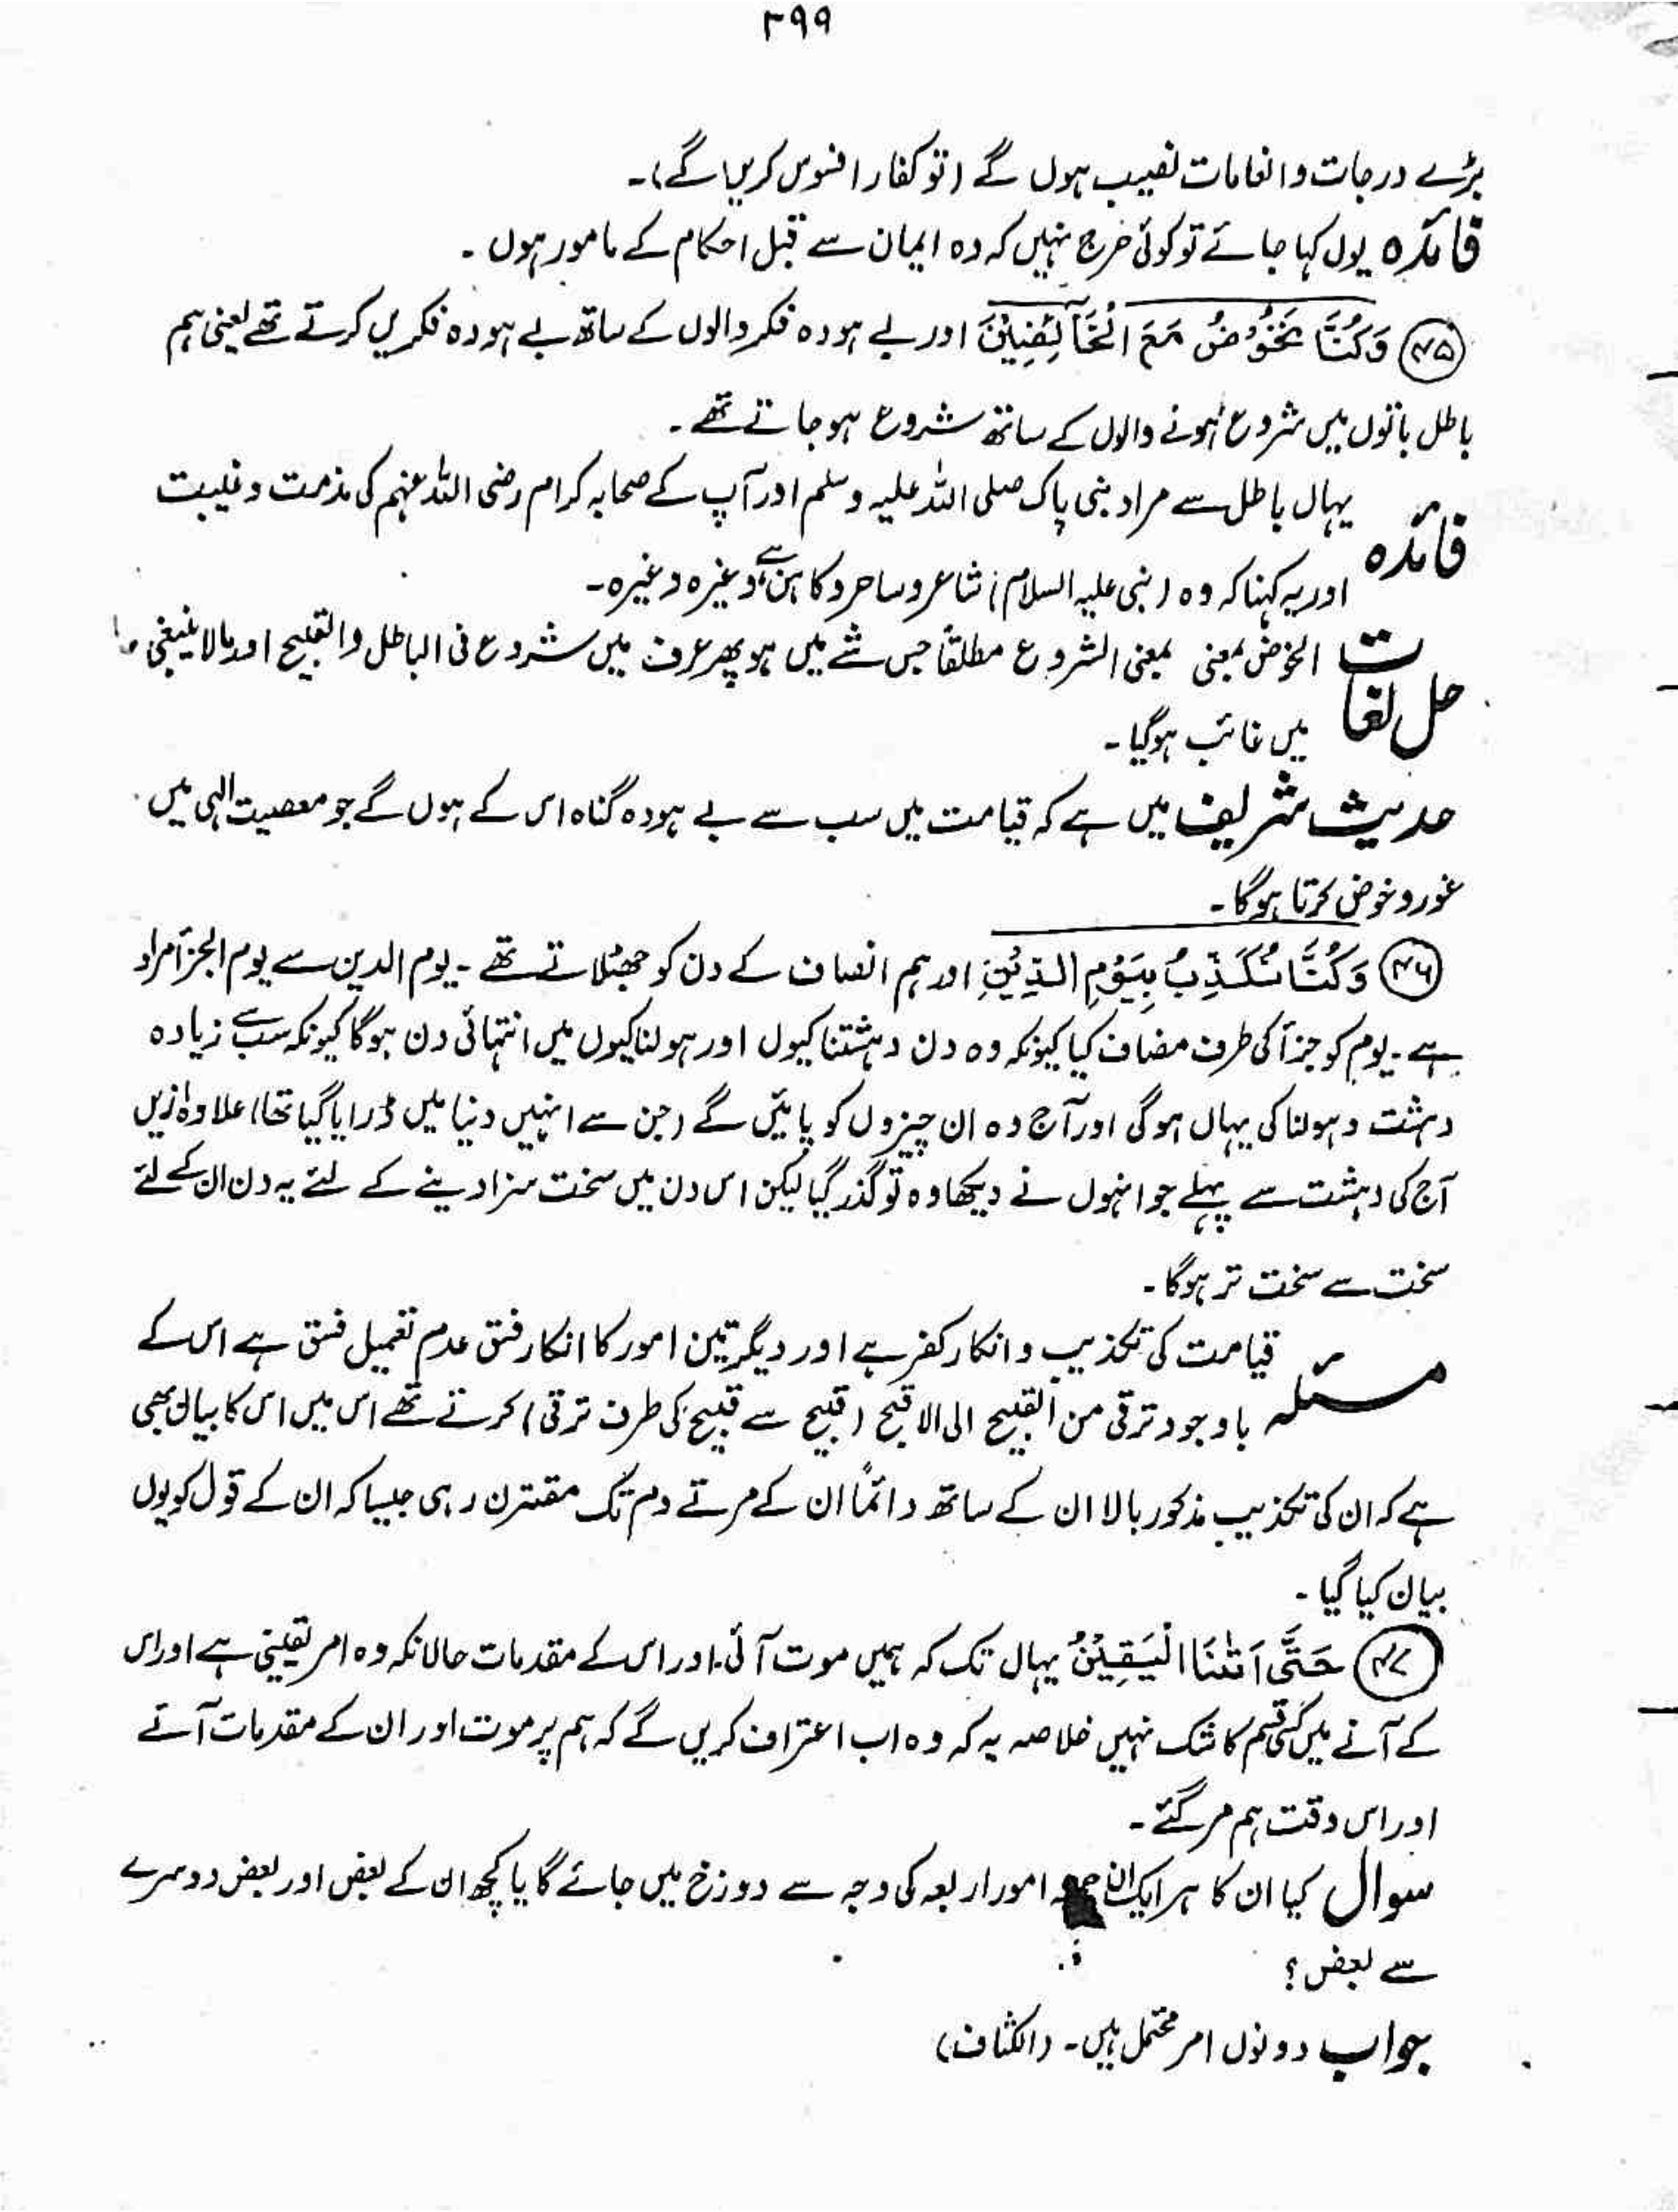 ۳۹۹
بڑے درجات و انعامات نصیب ہوں گے (تو کفار افسوس کریں گے)۔
فائدہ یوں کہا جائے تو کوئی حرج نہیں کہ وہ ایمان سے قبل احکام کے مامور ہوں ۔
(۴۵) وَكُنَّا نَخُوْضُ مَعَ الْخَآئِضِيْنَ اور بے ہودہ فکر والوں کے ساتھ بے ہودہ فکریں کرتے تھے یعنی ہم
باطل باتوں میں شروع ہونے والوں کے ساتھ شروع ہو جاتے تھے ۔
فائدہ یہاں باطل سے مراد نبی پاک صلی اللہ علیہ وسلم اور آپ کے صحابہ کرام رضی اللہ عنہم کی مذمت و غیبت
اور یہ کہنا کہ وہ (نبی علیہ السلام) شاعر و ساحر و کاہن ہے وغیرہ وغیرہ۔
حل لغات الخوض بمعنی بمعنی الشروع مطلقاً جس شے میں ہو پھر عرف میں شروع فی الباطل والقبیح اور مالا ینبغی
میں غائب ہو گیا ۔
حدیث شریف میں ہے کہ قیامت میں سب سے بے ہودہ گناہ اس کے ہوں گے جو معصیت الٰہی میں
غور و خوض کرتا ہوگا ۔
(۴۶) وَكُنَّا نُكَذِّبُ بِيَوْمِ الدِّيْنِ اور ہم انصاف کے دن کو جھٹلاتے تھے ۔ یوم الدین سے یوم الجزأ مراد
ہے ۔ یوم کو جزأ کی طرف مضاف کیا کیونکہ وہ دن دہشتناکیوں اور ہولناکیوں میں انتہائی دن ہوگا کیونکہ سب سے زیادہ
دہشت و ہولناکی یہاں ہوگی اور آج وہ ان چیزوں کو پائیں گے (جن سے انہیں دنیا میں ڈرایا گیا تھا) علاوہ ازیں
آج کی دہشت سے پہلے جو انہوں نے دیکھا وہ تو گذر گیا لیکن اس دن میں سخت سزا دینے کے لئے یہ دن ان کے لئے
سخت سے سخت تر ہوگا ۔
مسئلہ قیامت کی تکذیب و انکار کفر ہے اور دیگر تین امور کا انکار فسق عدم تعمیل فسق ہے اس کے
باوجود ترقی من القبیح الی الاقبح (قبیح سے قبیح کی طرف ترقی) کرتے تھے اس میں اس کا بیان بھی
ہے کہ ان کی تکذیب مذکور بالا ان کے ساتھ دائماً ان کے مرتے دم تک مقترن رہی جیسا کہ ان کے قول کو یوں
بیان کیا گیا ۔
(۴۷) حَتّٰى اَتٰنَا الْيَقِيْنُ یہاں تک کہ ہمیں موت آئی۔ اور اس کے مقدمات حالانکہ وہ امر یقینی ہے اور اس
کے آنے میں کسی قسم کا شک نہیں خلاصہ یہ کہ وہ اب اعتراف کریں گے کہ ہم پر موت اور ان کے مقدمات آئے
اور اس وقت ہم مر گئے ۔
سوال کیا ان کا ہر ایک ان امور اربعہ کی وجہ سے دوزخ میں جائے گا یا کچھ ان کے بعض اور بعض دوسرے
سے بعض ؟
جواب دونوں امر محتمل ہیں ۔ (الکشاف)